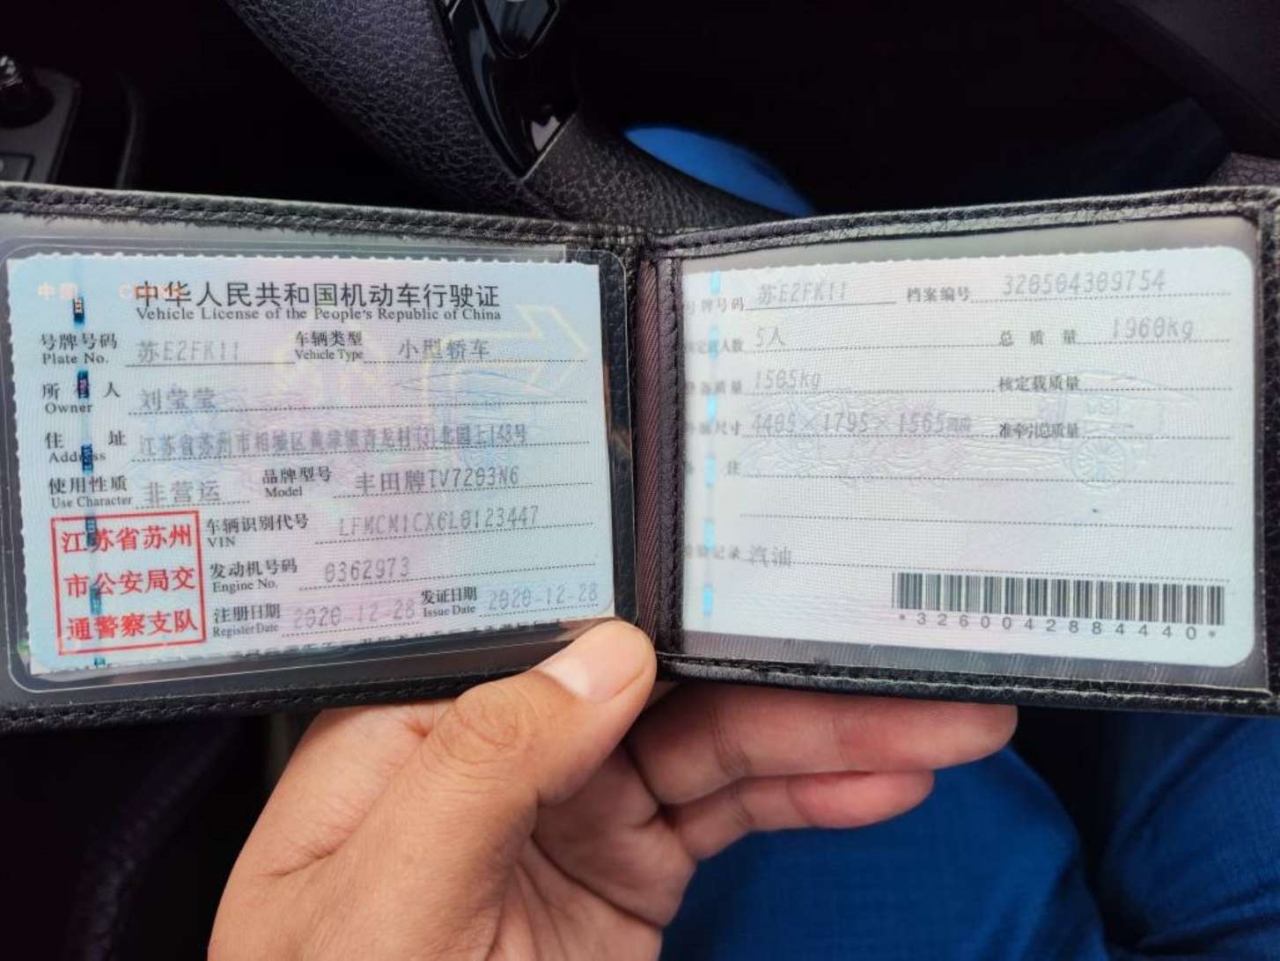 中国 CHINA
中华人民共和国机动车行驶证
Vehicle License of the People's Republic of China
号牌号码 苏E2FK11 车辆类型 小型轿车
Plate No. Vehicle Type
所有人 刘莹莹
Owner
住址 江苏省苏州市相城区黄埭镇青龙村 北园上148号
Address
使用性质 非营运 品牌型号 丰田牌TV7203N6
Use Character Model
江苏省苏州
市公安局交
通警察支队
车辆识别代号 LFMCM1CX6L0123447
VIN
发动机号码 0362973
Engine No.
注册日期 2020-12-28 发证日期 2020-12-28
Register Date Issue Date
号牌号码 苏E2FK11 档案编号 320504309754
核定载人数 5人 总质量 1960kg
整备质量 1505kg 核定载质量
外廓尺寸 4485×1795×1565mm 准牵引总质量
备注
检验记录 汽油
*3260042884440*